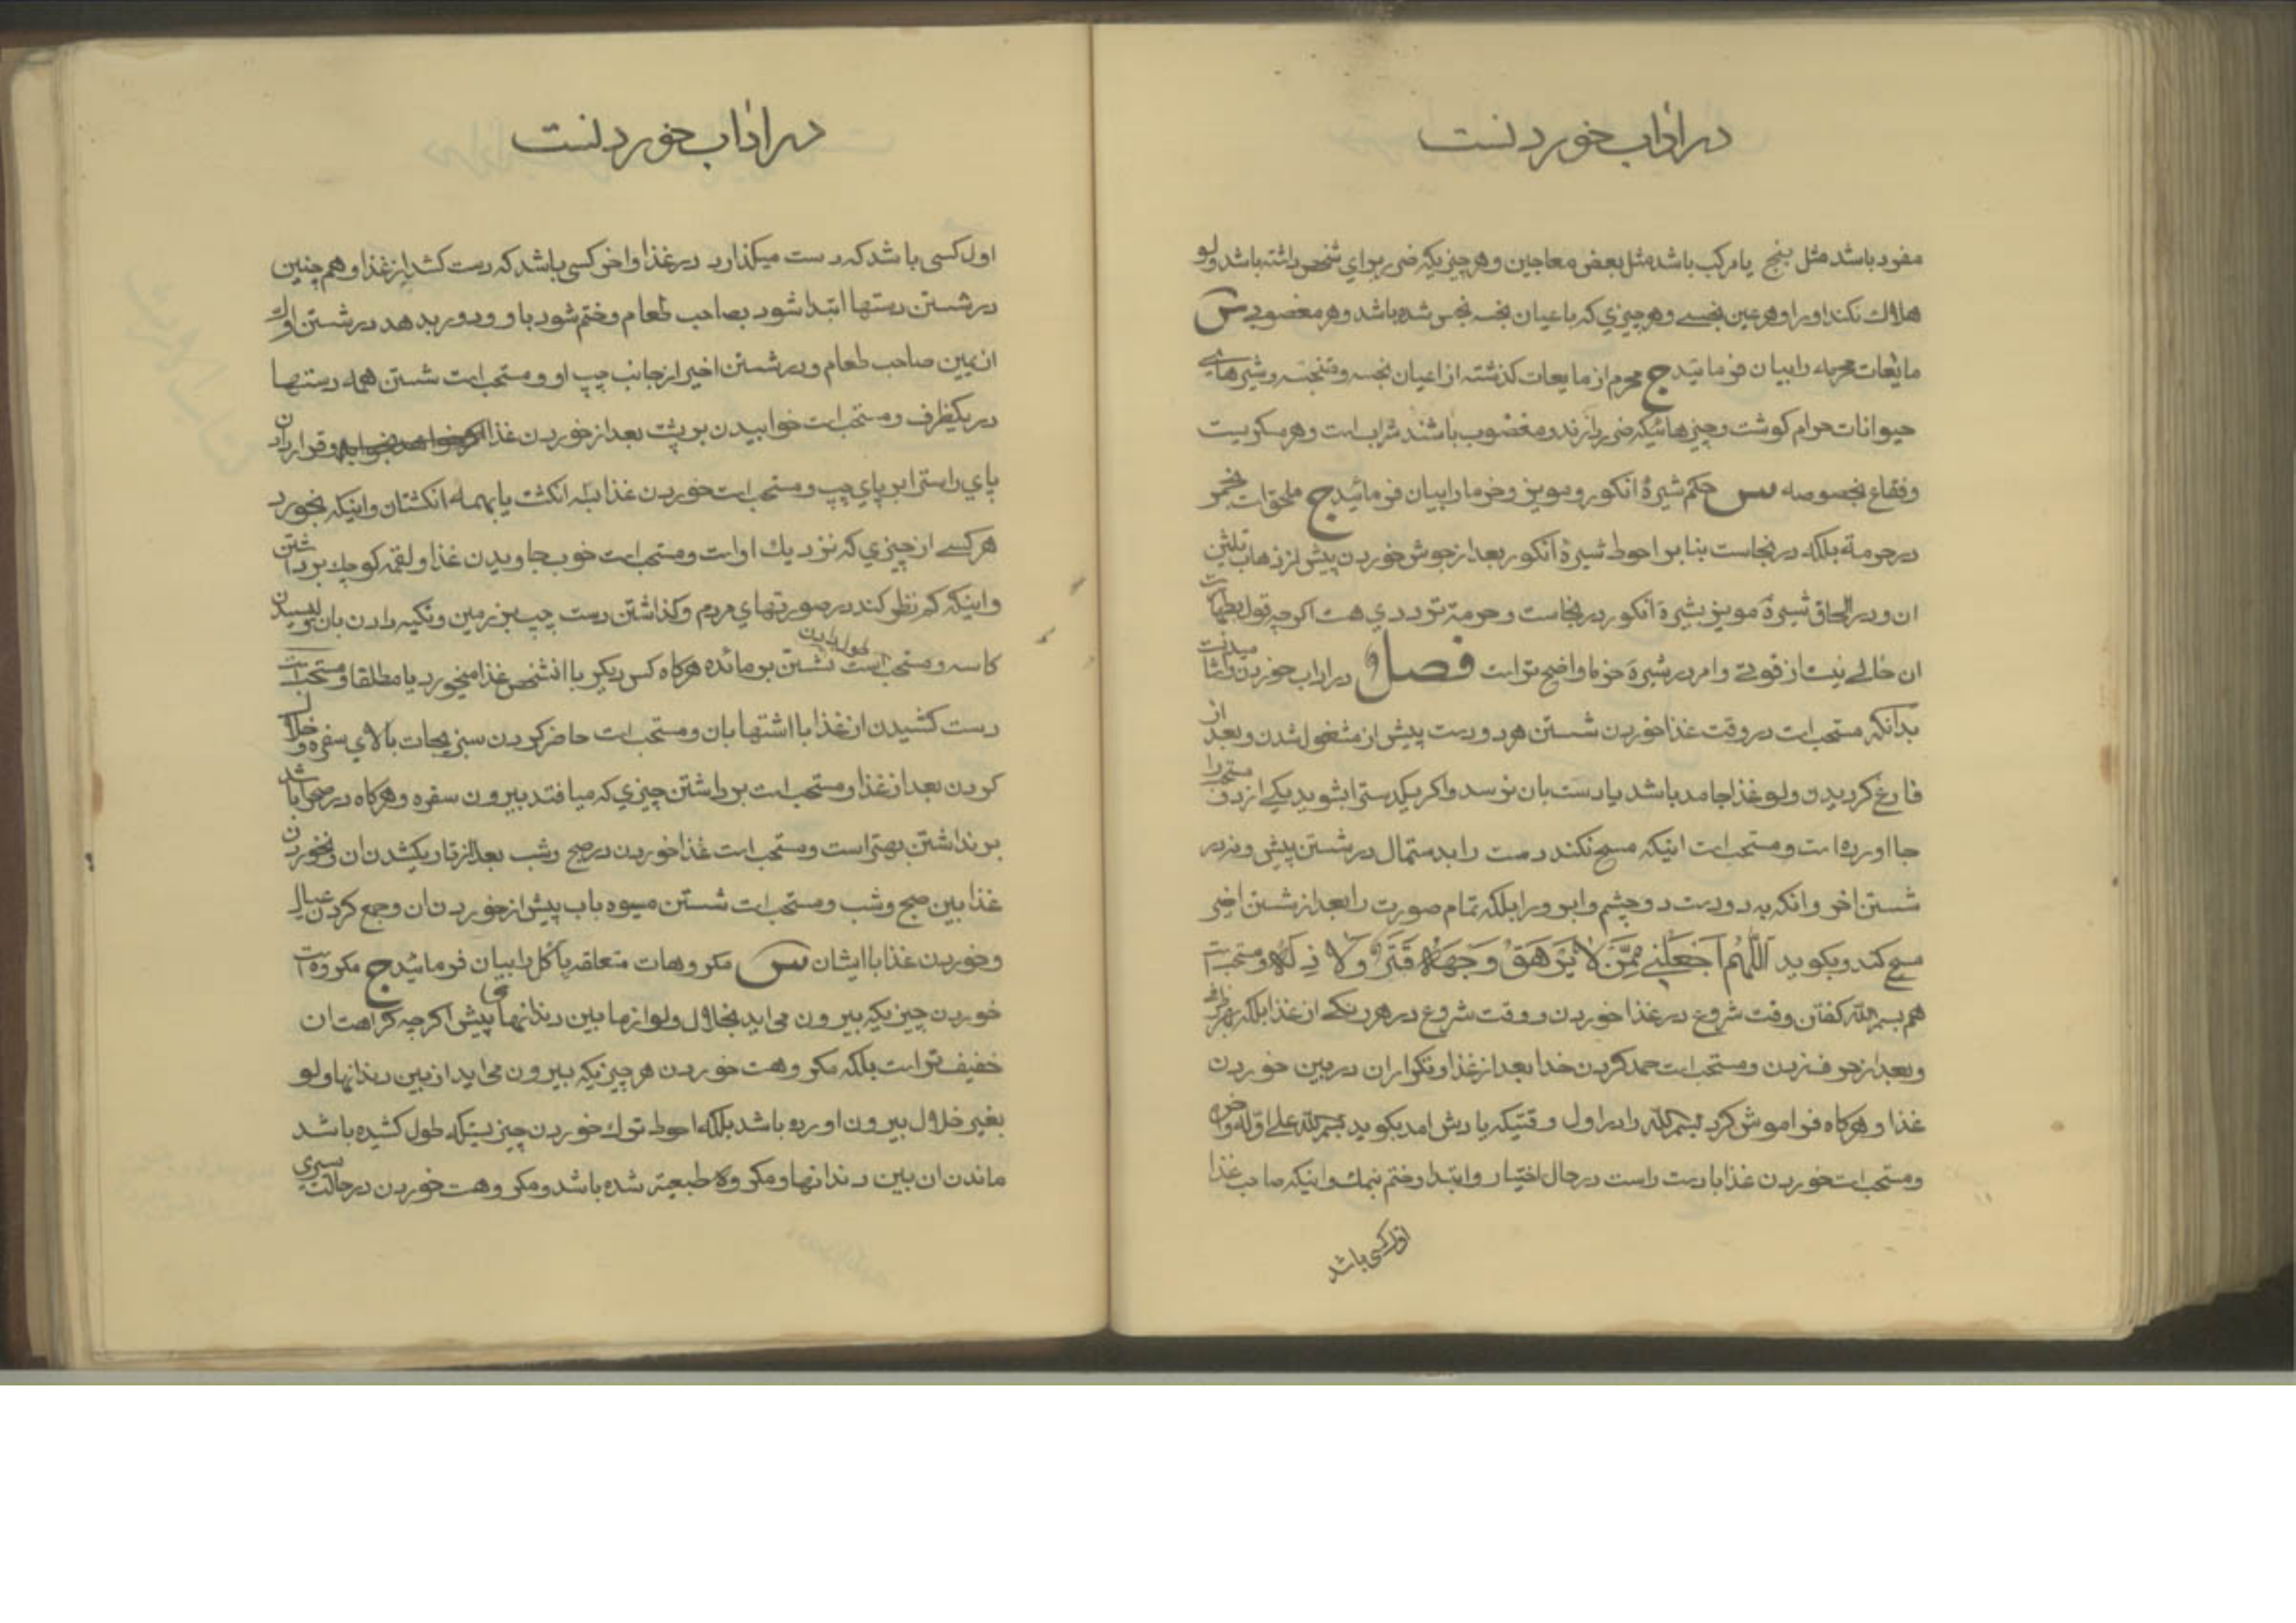 در اداب خوردنست
مفرد باشد مثل بنج یا مرکب باشد مثل بعض معاجین و هر چیزیکه ضرر برای شخص داشته باشد ولو
هلاك نکند او را و هر عین نجسے و هر چیزي که باعیان نجسه نجس شده باشد و هر مغصوبے س
مایعات محرمه را بیان فرمائید ج محرم از مایعات کذشته از اعیان نجسه و متنجسه و شیرهاے
حیوانات حرام کوشت و چیزهائیکه ضرر دارند و مغضوب باشند شرابست و هر مسکریست
و فقاع بخصوصه س حکم شیرۀ انکور و مویز و خرما را بیان فرمائید ج ملحق است بخمر
در حرمة بلکه در نجاست بنابر احوط شیرۀ انکور بعد از جوش خوردن پیش از ذهاب ثلثین
ان و در الحاق شیرۀ مویز بشیرۀ انکور در نجاست و حرمة ترددي هست اکرچه قول بطهارت
ان خالے نیست از قوتے و امر در شیرۀ خرما واضح تر است فصل در اداب خوردن و اشامیدنست
بدانکه مستحب است در وقت غذا خوردن شستن هر دو دست پیش از مشغول شدن و بعد از
فارغ کردیدن ولو غذا جامد باشد یا دست بان نرسد و اکر یکدستی را بشوید یکے از دو مستحب را
جا اورده است و مستحب است اینکه مسح نکند دست را بدستمال در شستن پیش و نه در
شستن اخر و انکه به دو دست دو چشم و ابرو را بلکه تمام صورت را بعد از شستن اخیر
مسح کند و بکوید اَللّهُمَ اجْعَلْنِے مِمَّنْ لا یَرْهَقُ وَجْهَهُ قَتَرٌ وَلا ذِلَّهٌ و مستحب است
هم بسم الله کفتن وقت شروع در غذا خوردن و وقت شروع در هر رنکے از غذا بلکه بهر ظرفے
و بعد از حرف زدن و مستحب است حمد کردن خدا بعد از غذا و تکرار ان در بین خوردن
غذا و هرکاه فراموش کرد بسم الله را در اول وقتیکه یادش امد بکوید بسم الله علے اوله و اخره
و مستحب است خوردن غذا با دست راست در حال اختیار و ابتدا و ختم بنمك و اینکه صاحب غذا
اول کسی باشد
در اداب خوردنست
اول کسی باشد که دست میکذارد در غذا و اخر کسی باشد که دست کشد از غذا و هم چنین
در شستن دستها ابتدا شود بصاحب طعام و ختم شود باو و دور بدهد در شستن اول
از یمین صاحب طعام و در شستن اخیر از جانب چپ او و مستحب است شستن همه دستها
در یکظرف و مستحب است خوابیدن بر پشت بعد از خوردن غذا و قرار دادن
پاي راست را بر پاي چپ و مستحب است خوردن غذا بسه انکشت یا بهمه انکشتان و اینکه بخورد
هر کسے از چیزي که نزدیك او است و مستحب است خوب جاویدن غذا و لقمه کوچك برداشتن
و اینکه کم نظر کند در صورتهاي مردم و کذاشتن دست چپ بر زمین و تکیه دادن بان و لیسیدن
کاسه و مستحب است طول دادن نشستن بر مائده هرکاه کس دیکر با انشخص غذا میخورد یا مطلقا و مستحب است
دست کشیدن از غذا با اشتها بان و مستحب است حاضر کردن سبزیجات بالاي سفره و خلال
کردن بعد از غذا و مستحب است برداشتن چیزي که میافتد بیرون سفره و هرکاه در صحرا باشد
برنداشتن بهتر است و مستحب است غذا خوردن در صبح و شب بعد از تاریکشدن ان و نخوردن
غذا بین صبح و شب و مستحب است شستن میوه باب پیش از خوردن ان و جمع کردن عیال
و خوردن غذا با ایشان س مکروهات متعلقه باکل را بیان فرمائید ج مکروه است
خوردن چیزیکه بیرون می اید بخلال ولو از ما بین دندانهای پیش اکرچه کراهت ان
خفیف تر است بلکه مکروهست خوردن هر چیزیکه بیرون می اید از بین دندانها ولو
بغیر خلال بیرون اورده باشد بلکه احوط ترك خوردن چیزیستکه طول کشیده باشد
ماندن ان بین دندانها و مکروه طبیعة شده باشد و مکروهست خوردن در حالت سیري